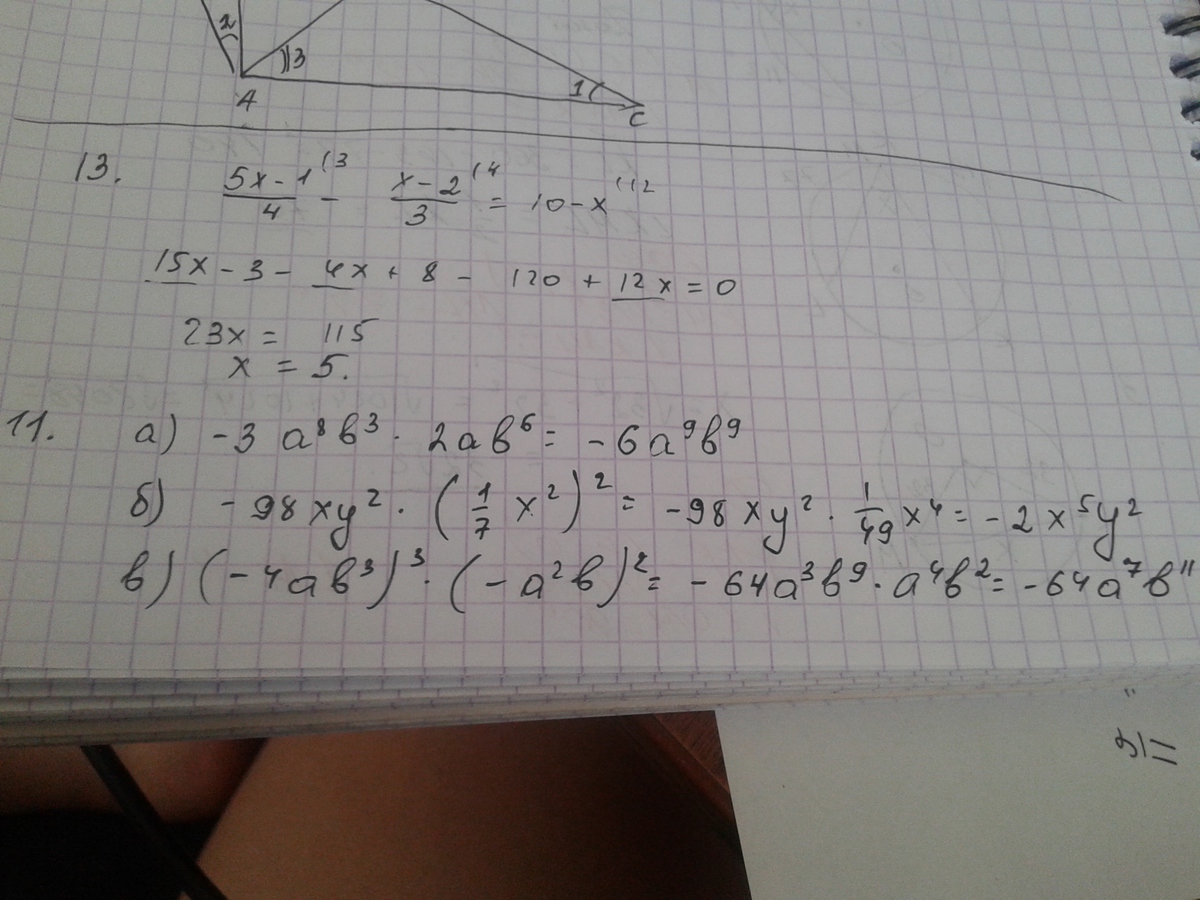 2
3
1
A
C
13. (5x-1)/4 ⁽³ - (x-2)/3 ⁽⁴ = 10-x ⁽¹²
15x - 3 - 4x + 8 - 120 + 12x = 0
23x = 115
x = 5.
11. а) -3a⁸b³ · 2ab⁶ = -6a⁹b⁹
б) -98xy² · (1/7 x²)² = -98xy² · 1/49 x⁴ = -2x⁵y²
в) (-4ab³)³ · (-a²b)² = -64a³b⁹ · a⁴b² = -64a⁷b¹¹